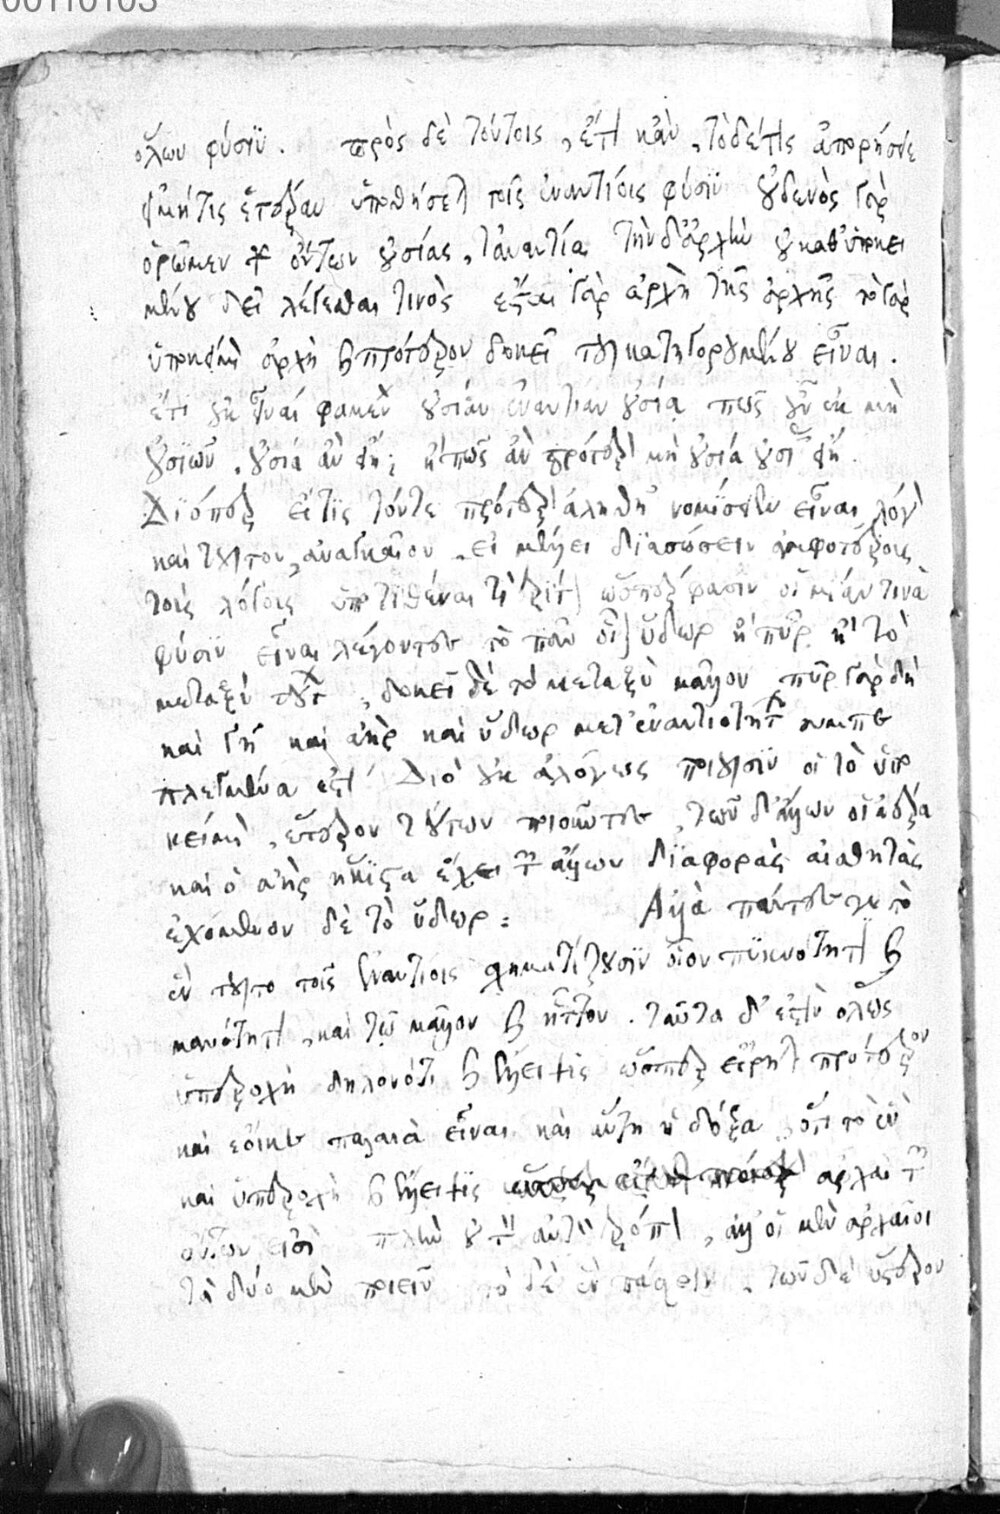 00110103
ὅλων φύσιν. πρὸς δὲ τούτοις, ἔτι κἂν, τὸδέ τις ἀπορήσειε
εἰ μή τις ἑτέραν ὑποθήσει τοῖς ἐναντίοις φύσιν οὐδενὸς γὰρ
ὁρῶμεν τῶν ὄντων οὐσίας, τἀναντία τὴν δ' ἀρχὴν οὐ καθ' ὑποκει
μένου δεῖ λέγεσθαι τινὸς ἔσται γὰρ ἀρχὴ τῆς ἀρχῆς τὸ γὰρ
ὑποκείμενον ἀρχὴ καὶ πρότερον δοκεῖ τοῦ κατηγορουμένου εἶναι.
ἔτι οὐκ εἶναί φαμεν οὐσίαν ἐναντίαν οὐσία πῶς οὖν ἐκ μὴ
οὐσιῶν, οὐσία ἂν εἴη; ἢ πῶς ἂν πρότερον μὴ οὐσία οὐσίας εἴη.
Διόπερ εἴ τις τόν τε πρότερον ἀληθῆ νομίσειεν εἶναι λόγον
καὶ τοῦτον, ἀναγκαῖον, εἰ μέλλει διασώσειν ἀμφοτέρους
τοὺς λόγους ὑποτιθέναι τι τρίτον ὥσπερ φασὶν οἱ μίαν τινὰ
φύσιν εἶναι λέγοντες τὸ πᾶν οἷον ὕδωρ ἢ πῦρ ἢ τὸ
μεταξὺ τούτων, δοκεῖ δὲ τὸ μεταξὺ μᾶλλον πῦρ γὰρ δὴ
καὶ γῆ καὶ ἀὴρ καὶ ὕδωρ μετ' ἐναντιοτήτων συμπε
πλεγμένα ἐστί Διὸ οὐκ ἀλόγως ποιοῦσιν οἱ τὸ ὑπο
κείμενον, ἕτερον τούτων ποιοῦντες, τῶν δ' ἄλλων οἱ ἀέρα
καὶ ὁ ἀὴρ ἥκιστα ἔχει τῶν ἄλλων διαφορὰς αἰσθητὰς
ἐχόμενον δὲ τὸ ὕδωρ: Ἀλλὰ πάντες γε τὸ
ἓν τοῦτο τοῖς ἐναντίοις σχηματίζουσιν οἷον πυκνότητι καὶ
μανότητι, καὶ τῷ μᾶλλον καὶ ἧττον. ταῦτα δ' ἐστὶν ὅλως
ὑπεροχὴ δηλονότι καὶ ἔλλειψις ὥσπερ εἴρηται πρότερον
καὶ ἔοικε παλαιὰ εἶναι καὶ αὕτη ἡ δόξα, ὅτι τὸ ἓν
καὶ ὑπεροχὴ καὶ ἔλλειψις ἀρχαὶ τῶν
ὄντων εἰσὶ πλὴν οὐ τὸν αὐτὸν τρόπον, ἀλλ' οἱ μὲν ἀρχαῖοι
τὰ δύο μὲν ποιεῖν τὸ δὲ ἓν πάσχειν. τῶν δὲ ὑστέρων